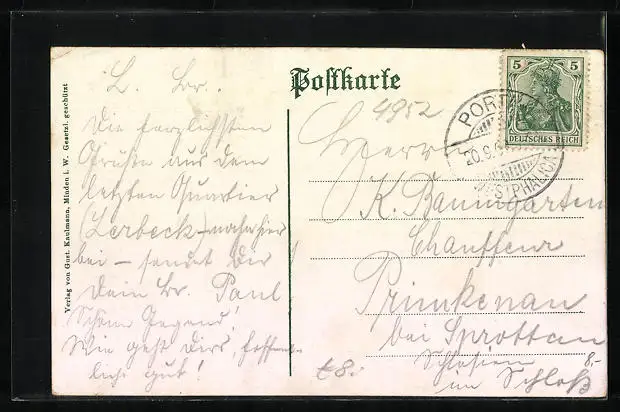 Postkarte
Verlag von Gust. Kaulmann, Minden i. W. Gesetzl. geschützt
L. Br.
Die herzlichsten
Grüße aus dem
letzten Quartier
(Lerbeck - nahe hier
bei - sendet Dir
Dein Br. Paul
Schöne Gegend!
Wie geht Dirs, hoffent-
lich gut!
4952
5 5
DEUTSCHES REICH
PORTA
20.9.
WESTPHALICA
Herrn
K. Baumgarten
Chauffeur
Primkenau
bei Sprottau
Schlesien
im Schloß
8.-